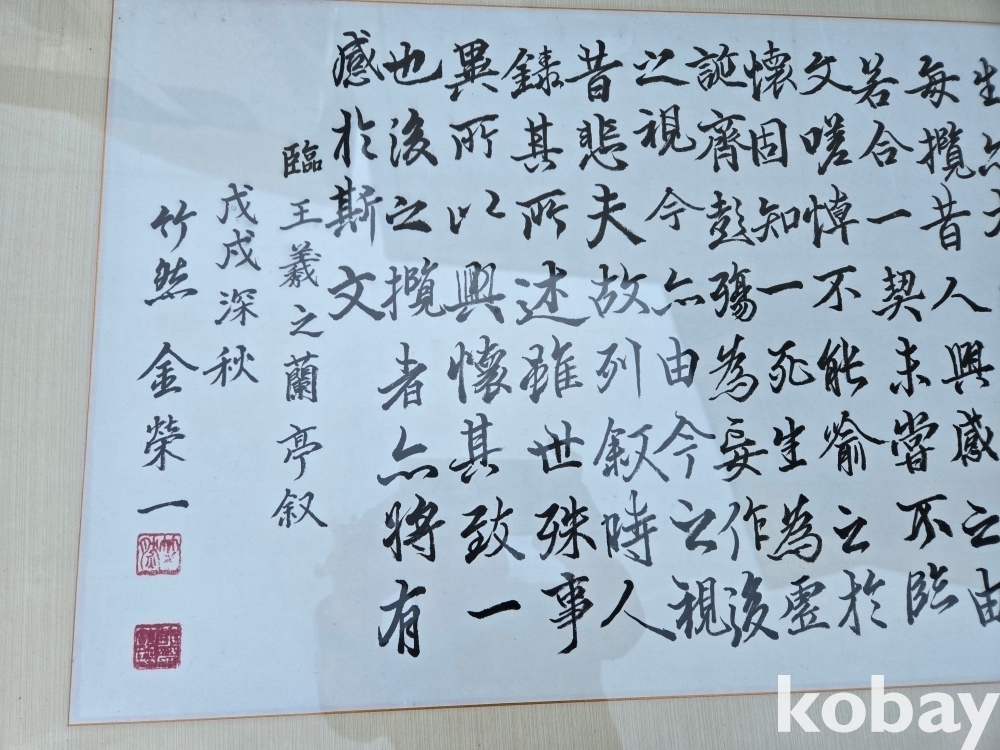 生
每攬昔人興感之由
若合一契未嘗不臨
文嗟悼不能喻之於
懷固知一死生為虛
誕齊彭殤為妄作後
之視今亦由今之視
昔悲夫故列叙時人
錄其所述雖世殊事
異所以興懷其致一
也後之攬者亦將有
感於斯文
臨王羲之蘭亭叙
戊戌深秋
竹然金榮一
kobay